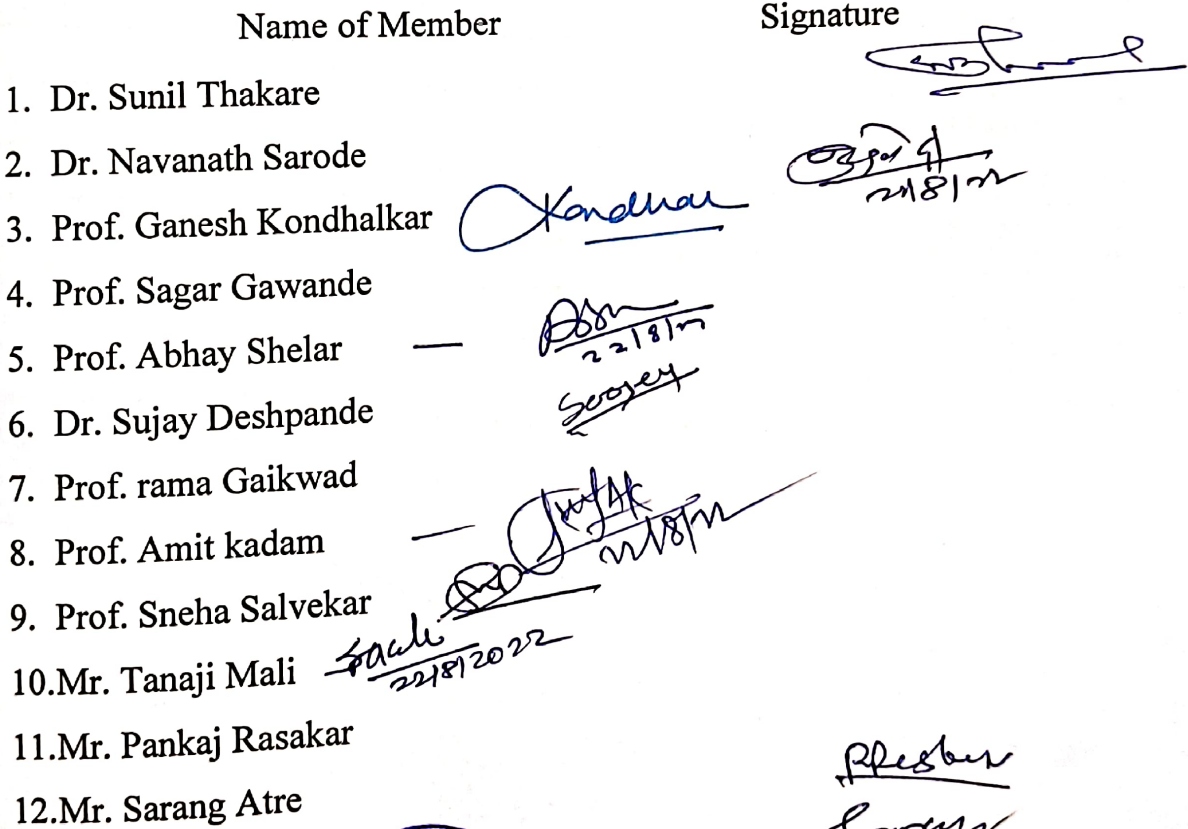 Name of Member Signature
1. Dr. Sunil Thakare
2. Dr. Navanath Sarode
22/8/22
3. Prof. Ganesh Kondhalkar
4. Prof. Sagar Gawande
5. Prof. Abhay Shelar —
22/8/22
6. Dr. Sujay Deshpande
7. Prof. rama Gaikwad
8. Prof. Amit kadam —
22/8/22
9. Prof. Sneha Salvekar
10.Mr. Tanaji Mali
22/8/2022
11.Mr. Pankaj Rasakar
12.Mr. Sarang Atre